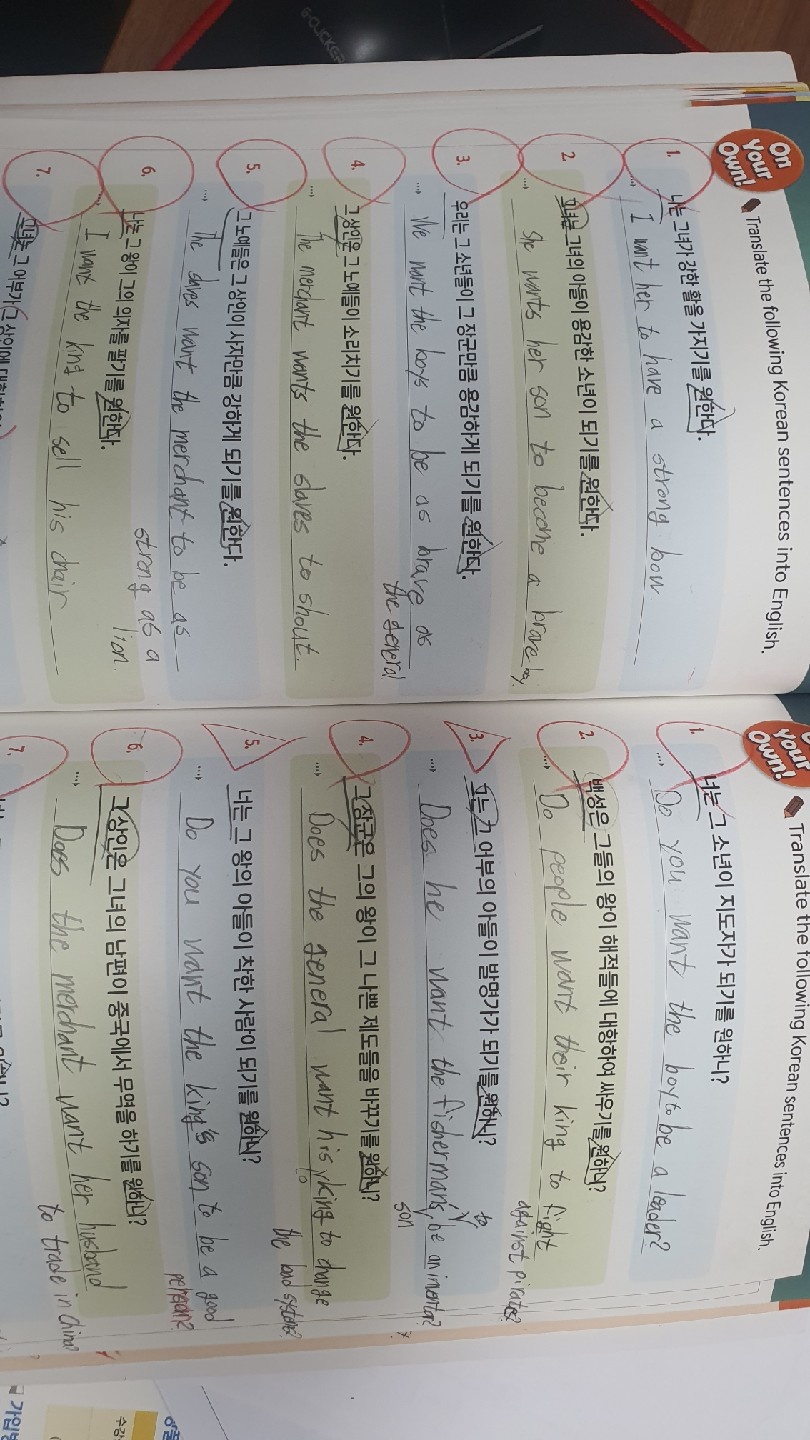 On Your Own!
Translate the following Korean sentences into English.
1. 나는 그녀가 강한 활을 가지기를 원한다.
I want her to have a strong bow
2. 그녀는 그녀의 아들이 용감한 소년이 되기를 원한다.
She wants her son to become a brave boy.
3. 우리는 그 소년들이 그 장군만큼 용감하게 되기를 원한다.
We want the boys to be as brave as
the general
4. 그 상인은 그 노예들이 소리치기를 원한다.
The merchant wants the slaves to shout.
5. 그 노예들은 그 상인이 사자만큼 강하게 되기를 원한다.
The slaves want the merchant to be as
strong as a
lion.
6. 나는 그 왕이 그의 의자를 팔기를 원한다.
I want the king to sell his chair
7. 그 어부가 그 상인에
Your Own!
Translate the following Korean sentences into English.
1. 너는 그 소년이 지도자가 되기를 원하니?
Do you want the boy to be a leader?
2. 백성은 그들의 왕이 해적들에 대항하여 싸우기를 원하니?
Do people want their king to fight
against pirates?
3. 그는 그 어부의 아들이 발명가가 되기를 원하니?
Does he want the fisherman's be an inventor?
son to
4. 그 장군은 그의 왕이 그 나쁜 제도들을 바꾸기를 원하니?
Does the general want his king to change
the bad system?
5. 너는 그 왕의 아들이 착한 사람이 되기를 원하니?
Do you want the king's son to be a good
person?
6. 그 상인은 그녀의 남편이 중국에서 무역을 하기를 원하니?
Does the merchant want her husband
to trade in China?
7.